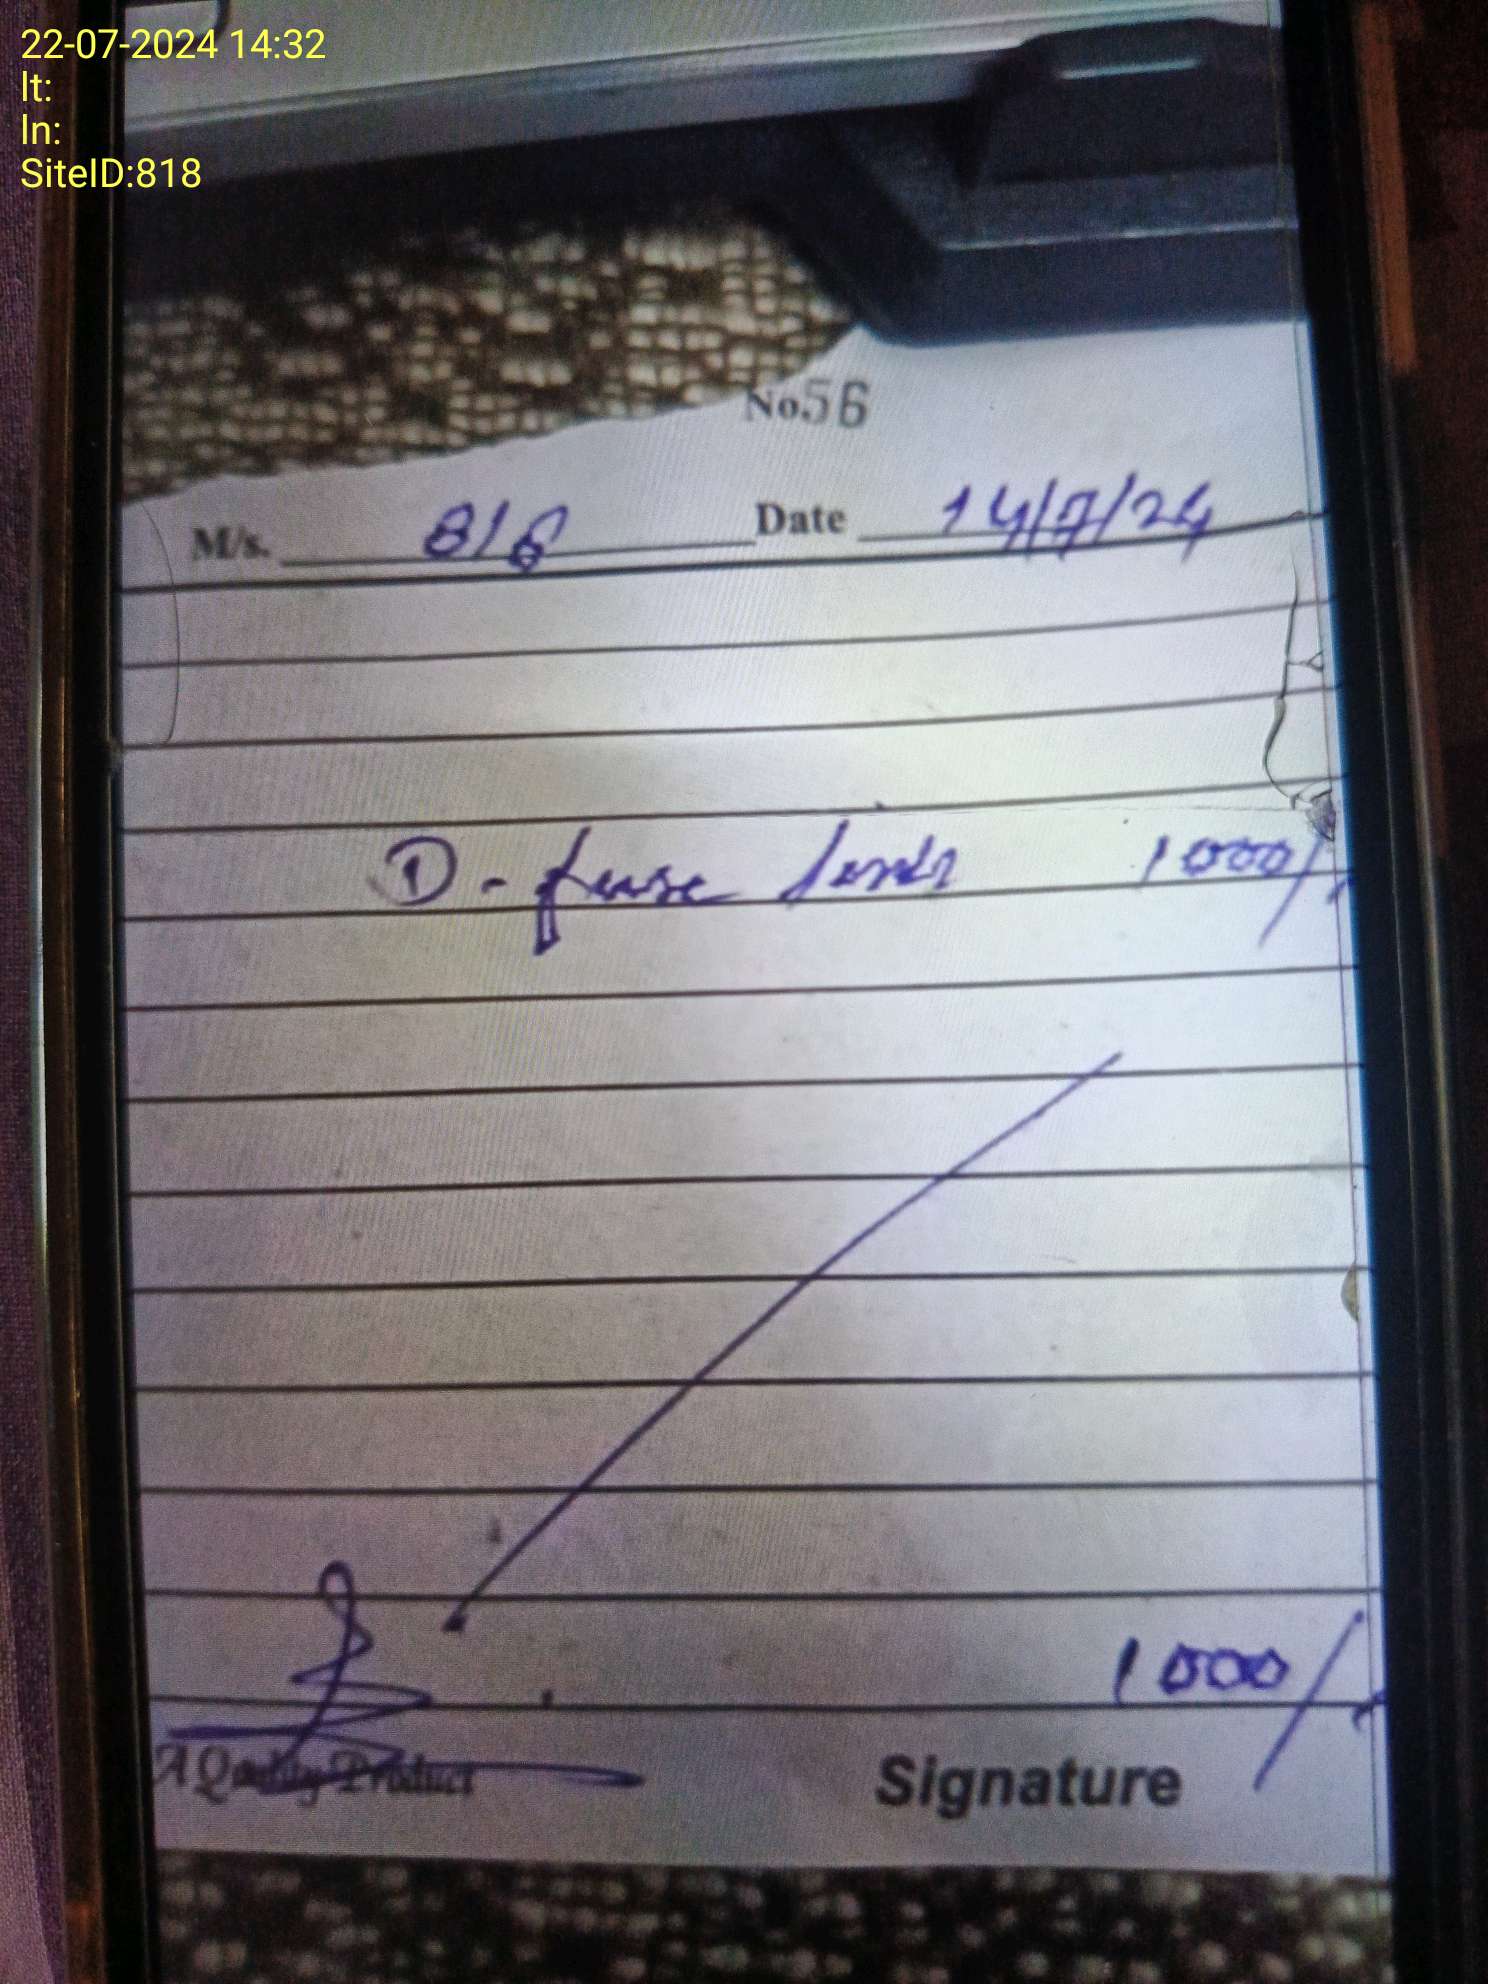 22-07-2024 14:32
lt:
ln:
SiteID:818
No.56
M/s. 818 Date 14/7/24
D- fuse 1000/-
1000/-
A Quality Product Signature